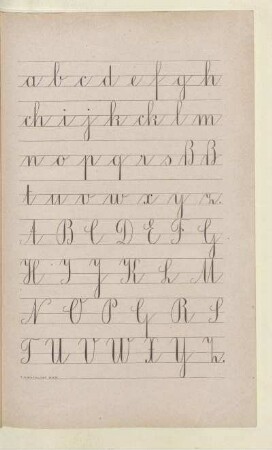 a b c d e f g h
ch i j k ck l m
n o p q r s ß ß
t u v w x y z.
A B C D E F G
H I J K L M
N O P Q R S
T U V W X Y Z.